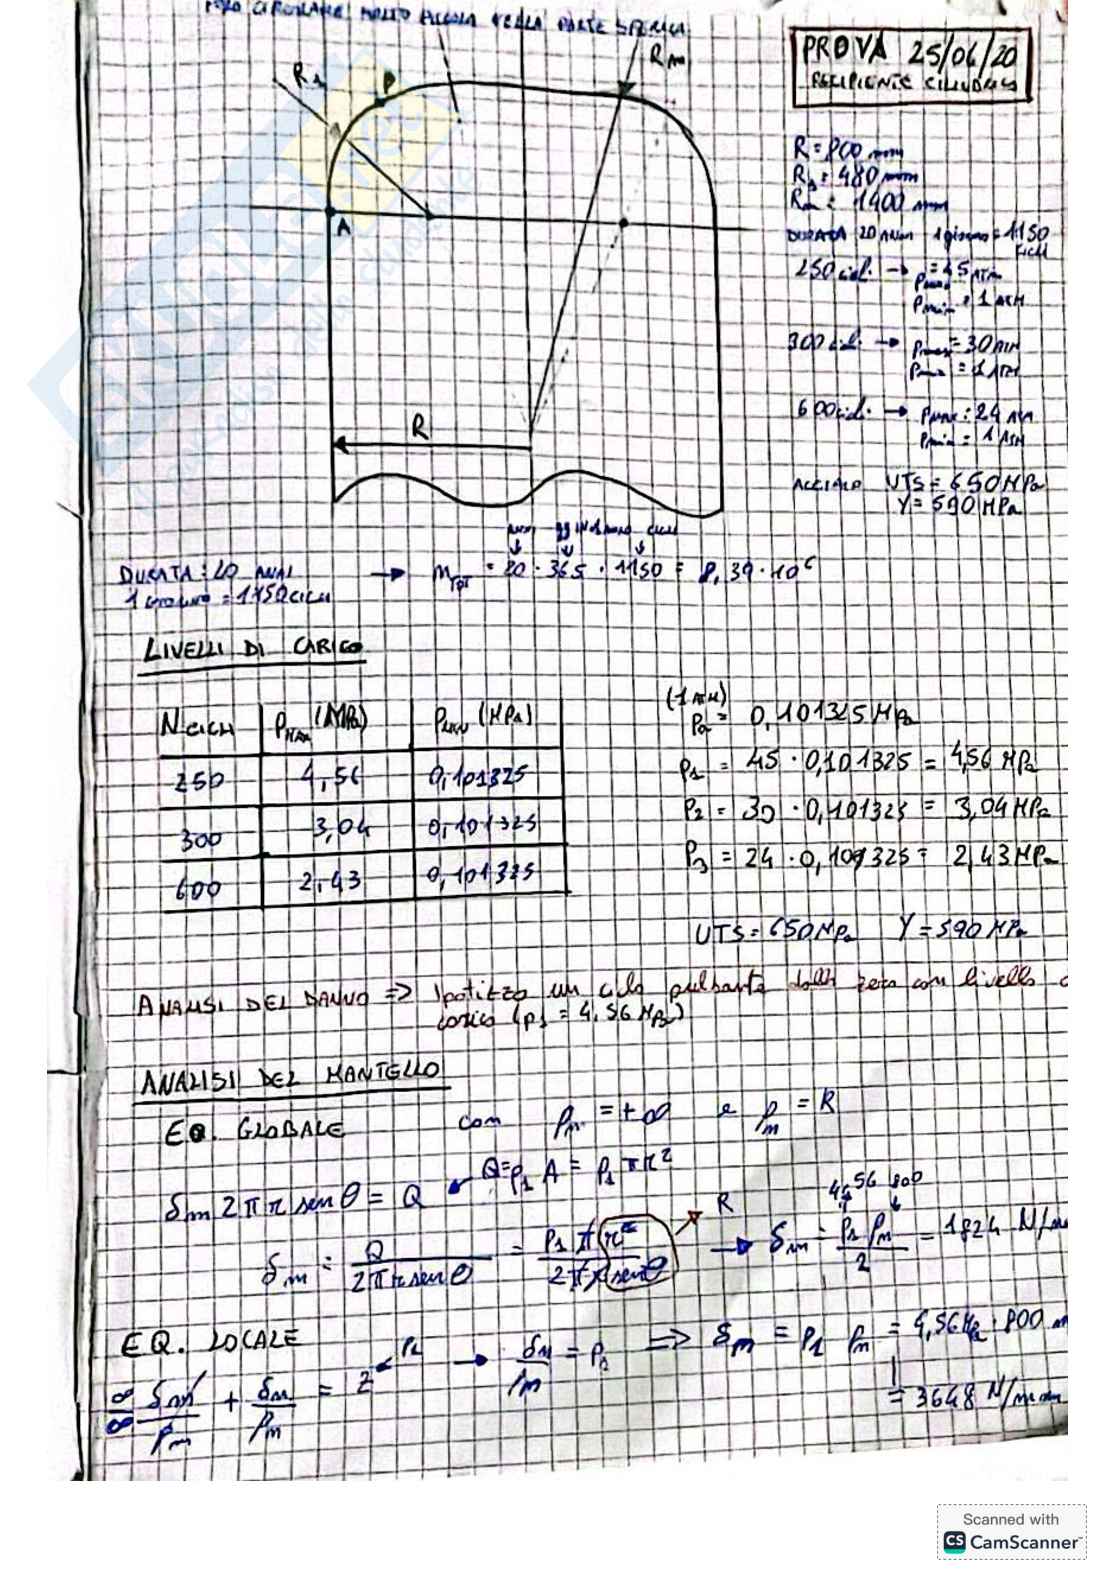 FORO CIRCOLARE MOLTO PICCOLO NELLA PARTE SFERICA
R1
P
Rm
A
R
PROVA 25/06/20
RECIPIENTE CILINDRICO
R = 800 mm
R1 = 480 mm
Rm = 1400 mm
DURATA 20 ANNI 1 giorno = 1150 CICLI
250 cicli → pmax = 45 ATM
pmin = 1 ATM
300 cicli → pmax = 30 ATM
pmin = 1 ATM
600 cicli → pmax = 24 ATM
pmin = 1 ATM
ACCIAIO UTS = 650 MPa
Y = 590 MPa
ANNI gg IN 1 ANNO CICLI
DURATA: 20 ANNI → nTOT = 20 · 365 · 1150 = 8,39 · 10^6
1 GIORNO = 1150 CICLI
LIVELLI DI CARICO
N CICLI PMAX (MPa) PMIN (MPa)
250 4,56 0,101325
300 3,04 0,101325
600 2,43 0,101325
(1 ATM)
Pa = 0,101325 MPa
P1 = 45 · 0,101325 = 4,56 MPa
P2 = 30 · 0,101325 = 3,04 MPa
P3 = 24 · 0,101325 = 2,43 MPa
UTS = 650 MPa Y = 590 MPa
ANALISI DEL DANNO ⇒ Ipotizzo un ciclo pulsante dallo zero con livello
carico (p1 = 4,56 MPa)
ANALISI DEL MANTELLO
EQ. GLOBALE con ρn = +∞ e ρm = R
δm 2πr senθ = Q ← Q = p1 A = p1 πr²
δm = Q / 2πr senθ = P1 π r² / 2πr senθ R → δm = P1 ρm / 2 = 1824 N/m
4,56 800
EQ. LOCALE
δm/ρm + δn/ρm = Z P1 → δn/ρm = P1 ⇒ δm = P1 ρm = 4,56 MPa · 800 m
= 3648 N/mm
Scanned with
CS CamScanner